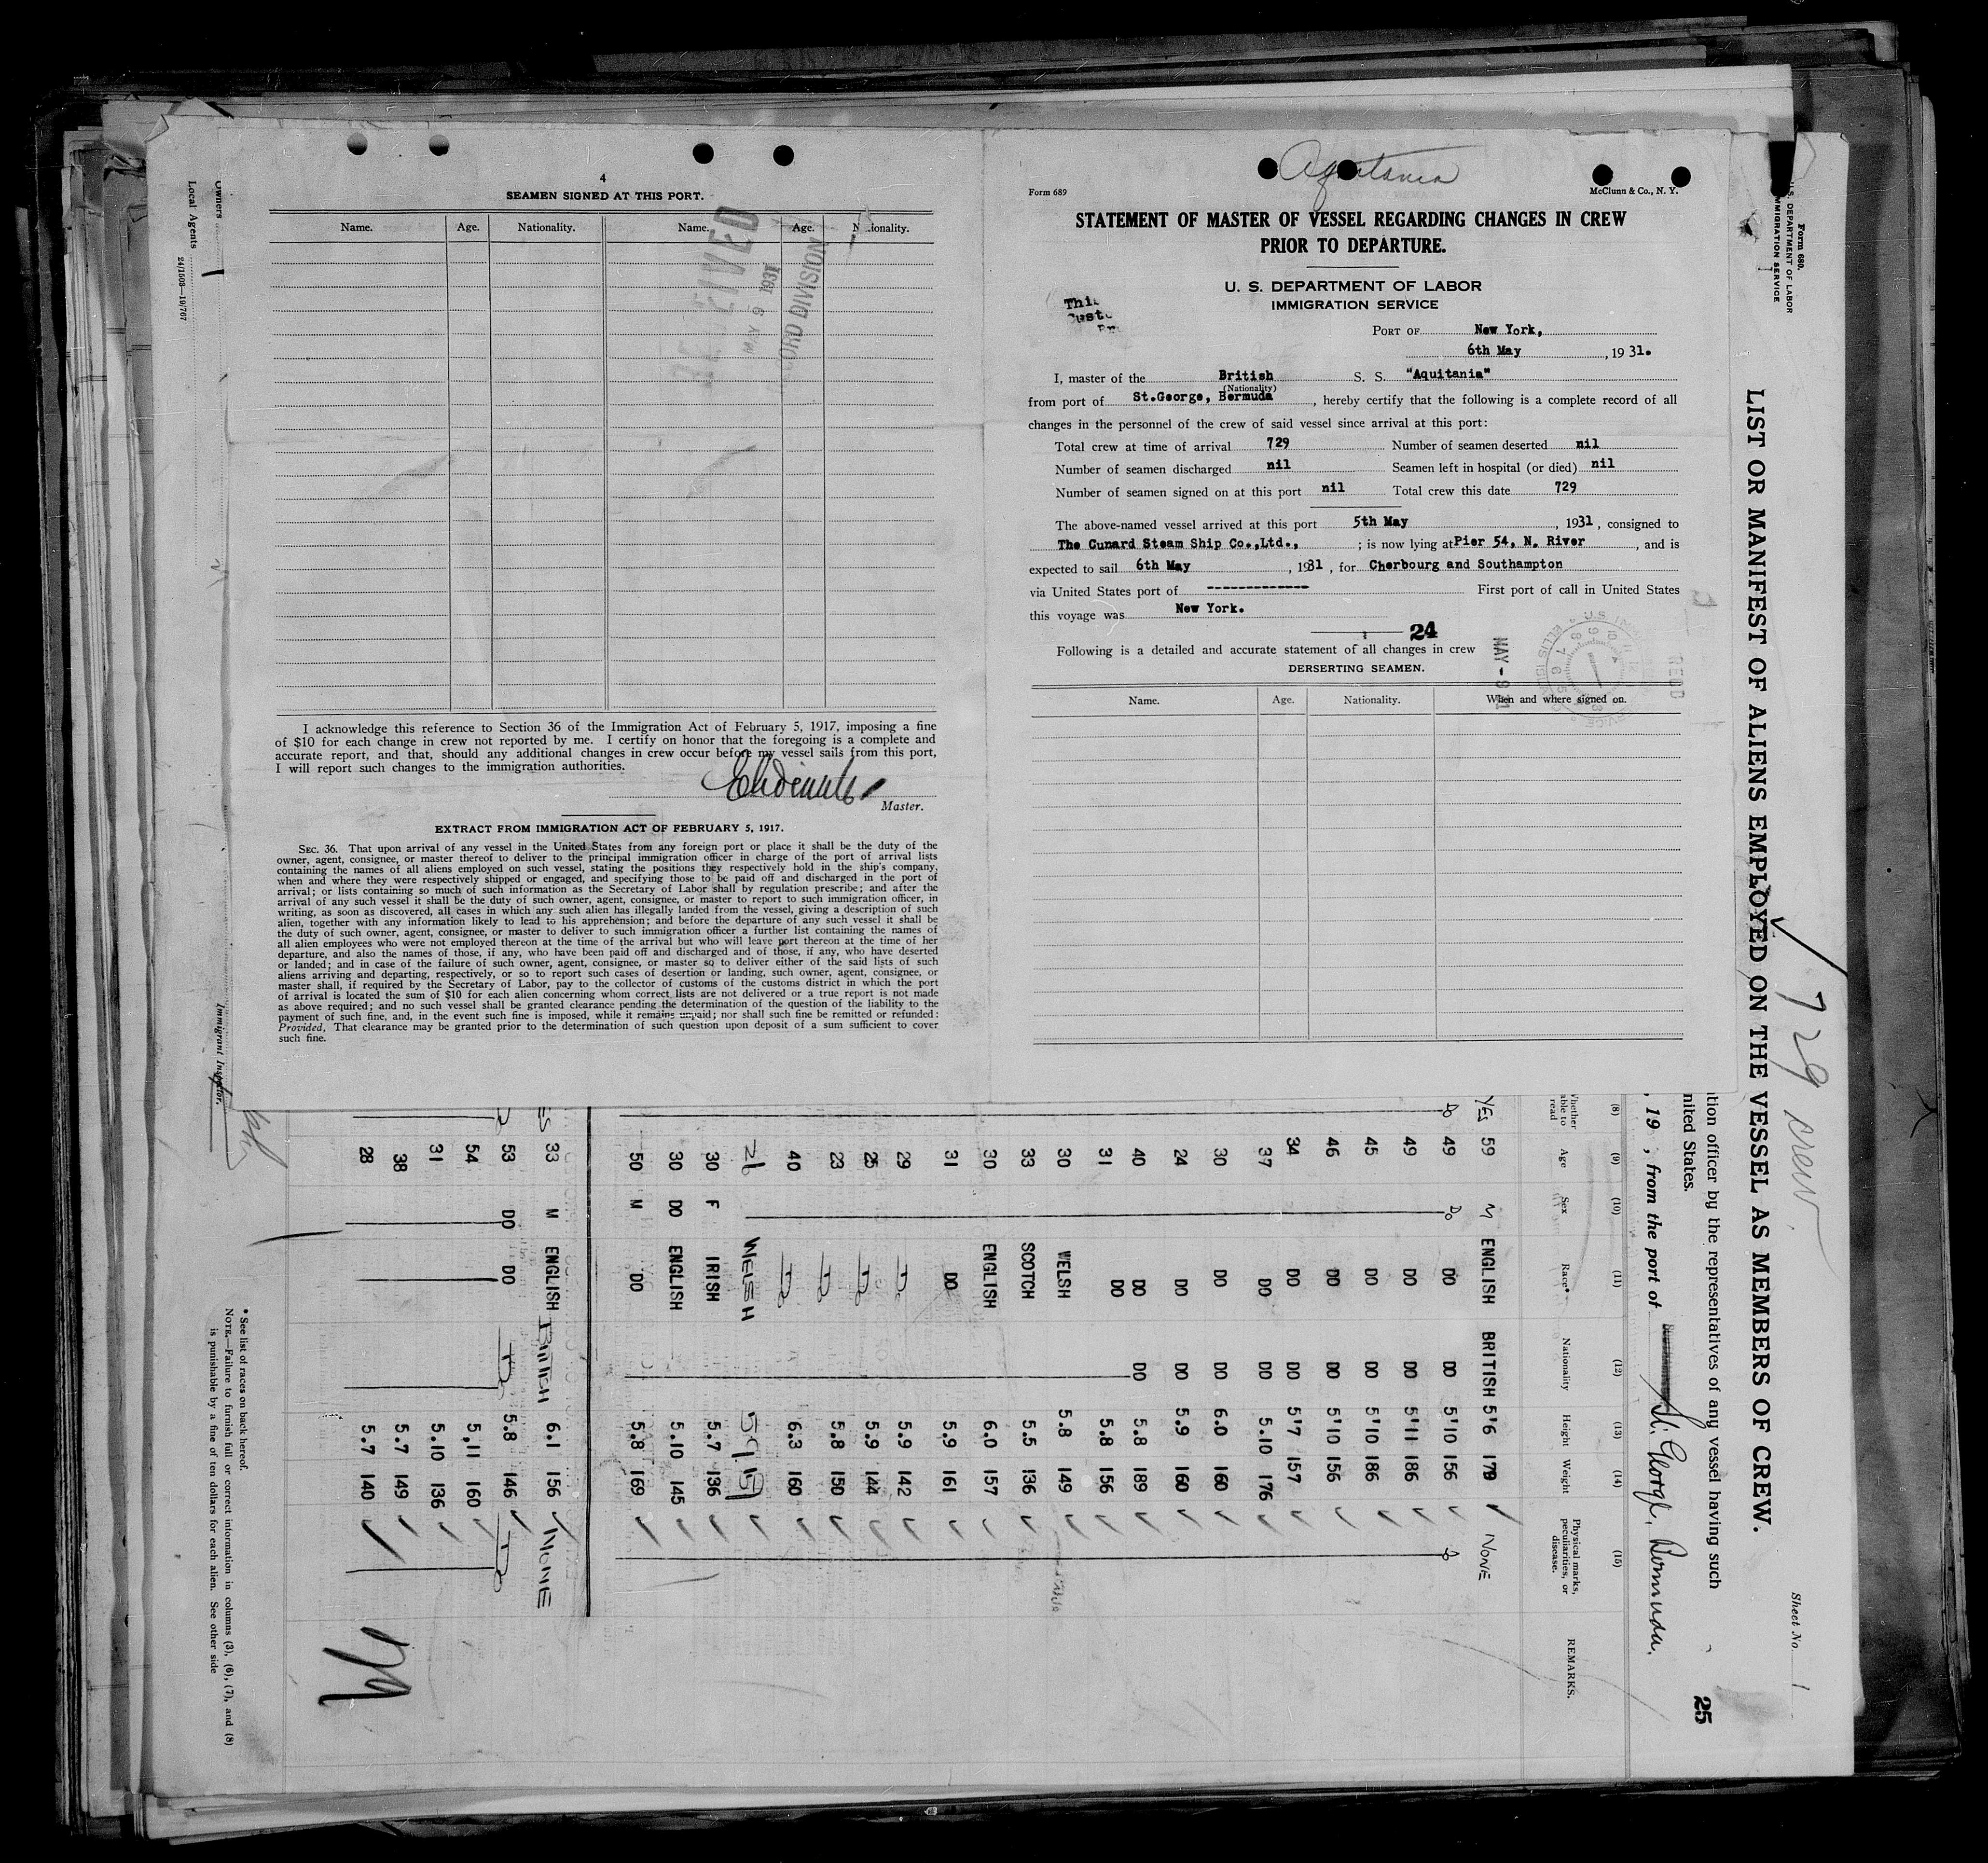 4
SEAMEN SIGNED AT THIS PORT.
Name. Age. Nationality. Name. Age.
MAY 9 1931
I acknowledge this reference to Section 36 of the Immigration Act of February 5, 1917, imposing a fine
of $10 for each change in crew not reported by me. I certify on honor that the foregoing is a complete and
accurate report, and that, should any additional changes in crew occur before my vessel sails from this port,
I will report such changes to the immigration authorities.
Master.
EXTRACT FROM IMMIGRATION ACT OF FEBRUARY 5, 1917.
SEC. 36. That upon arrival of any vessel in the United States from any foreign port or place it shall be the duty of the
owner, agent, consignee, or master thereof to deliver to the principal immigration officer in charge of the port of arrival lists
containing the names of all aliens employed on such vessel, stating the positions they respectively hold in the ship's company,
when and where they were respectively shipped or engaged, and specifying those to be paid off and discharged in the port of
arrival; or lists containing so much of such information as the Secretary of Labor shall by regulation prescribe; and after the
arrival of any such vessel it shall be the duty of such owner, agent, consignee, or master to report to such immigration officer, in
writing, as soon as discovered, all cases in which any such alien has illegally landed from the vessel, giving a description of such
alien, together with any information likely to lead to his apprehension; and before the departure of any such vessel it shall be
the duty of such owner, agent, consignee, or master to deliver to such immigration officer a further list containing the names of
all alien employees who were not employed thereon at the time of the arrival but who will leave port thereon at the time of her
departure, and also the names of those, if any, who have been paid off and discharged and of those, if any, who have deserted
or landed; and in case of the failure of such owner, agent, consignee, or master so to deliver either of the said lists of such
aliens arriving and departing, respectively, or so to report such cases of desertion or landing, such owner, agent, consignee, or
master shall, if required by the Secretary of Labor, pay to the collector of customs of the customs district in which the port
of arrival is located the sum of $10 for each alien concerning whom correct lists are not delivered or a true report is not made
as above required; and no such vessel shall be granted clearance pending the determination of the question of the liability to the
payment of such fine, and, in the event such fine is imposed, while it remains unpaid; nor shall such fine be remitted or refunded:
Provided, That clearance may be granted prior to the determination of such question upon deposit of a sum sufficient to cover
such fine.
Aquitania
Form 689 McClunn & Co., N. Y.
STATEMENT OF MASTER OF VESSEL REGARDING CHANGES IN CREW
PRIOR TO DEPARTURE.
U. S. DEPARTMENT OF LABOR
IMMIGRATION SERVICE
PORT OF New York,
6th May , 1931.
I, master of the British S. S. "Aquitania"
(Nationality)
from port of St.George, Bermuda , hereby certify that the following is a complete record of all
changes in the personnel of the crew of said vessel since arrival at this port:
Total crew at time of arrival 729 Number of seamen deserted nil
Number of seamen discharged nil Seamen left in hospital (or died) nil
Number of seamen signed on at this port nil Total crew this date 729
The above-named vessel arrived at this port 5th May , 1931 , consigned to
The Cunard Steam Ship Co.,Ltd., ; is now lying at Pier 54, N. River , and is
expected to sail 6th May , 1931 , for Cherbourg and Southampton
via United States port of ------------- First port of call in United States
this voyage was New York.
24
Following is a detailed and accurate statement of all changes in crew
DERSERTING SEAMEN.
Name. Age. Nationality. When and where signed on.
Form 680.
U.S. DEPARTMENT OF LABOR
IMMIGRATION SERVICE
Sheet No. 1
729 crew
LIST OR MANIFEST OF ALIENS EMPLOYED ON THE VESSEL AS MEMBERS OF CREW.
25
officer by the representatives of any vessel having such
States.
, 19 , from the port of St. George, Bermuda.
(8) (9) (10) (11) (12) (13) (14) (15)
Whether able to read Age Sex Race* Nationality Height Weight Physical marks, peculiarities, or disease. REMARKS.
YES 59 M ENGLISH BRITISH 5'6 179 NONE
Do 49 Do DO DO 5'10 156 Do
49 DO DO 5'11 186
45 DO DO 5'10 186
46 DO DO 5'10 156
34 DO DO 5'7 157
37 DO DO 5.10 176
30 DO DO 6.0 160
24 DO DO 5.9 160
40 DO DO 5.8 189
31 DO 5.8 156
30 WELSH 5.8 149
33 SCOTCH 5.5 136
30 ENGLISH 6.0 157
31 DO 5.9 161
29 Do 5.9 142
25 Do 5.9 144
23 Do 5.8 150
40 Do 6.3 160
26 WELSH 5.9
30 F IRISH 5.7 136
30 DO ENGLISH 5.10 145
50 M DO 5.8 169
33 M ENGLISH BRITISH 6.1 156 NONE
53 DO DO Do 5.8 146 Do
54 5,11 160
31 5.10 136
38 5.7 149
28 5.7 140
* See list of races on back hereof.
NOTE.—Failure to furnish full or correct information in columns (3), (6), (7), and (8)
is punishable by a fine of ten dollars for each alien. See other side
Immigrant Inspector.
Owners
Local Agents
24/1503—19/767